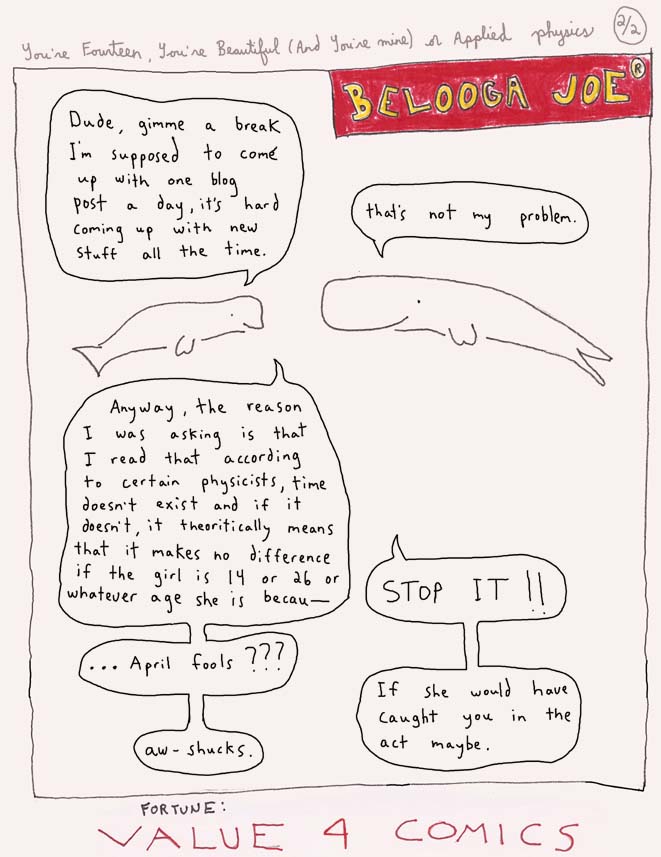 You're Fourteen, You're Beautiful (And You're mine) or Applied physics 2/2
BELOOGA JOE®
Dude, gimme a break
I'm supposed to come
up with one blog
post a day, it's hard
coming up with new
stuff all the time.
that's not my problem.
Anyway, the reason
I was asking is that
I read that according
to certain physicists, time
doesn't exist and if it
doesn't, it theoritically means
that it makes no difference
if the girl is 14 or 26 or
whatever age she is becau—
STOP IT !!
... April fools ???
If she would have
caught you in the
act maybe.
aw-shucks.
FORTUNE:
VALUE 4 COMICS